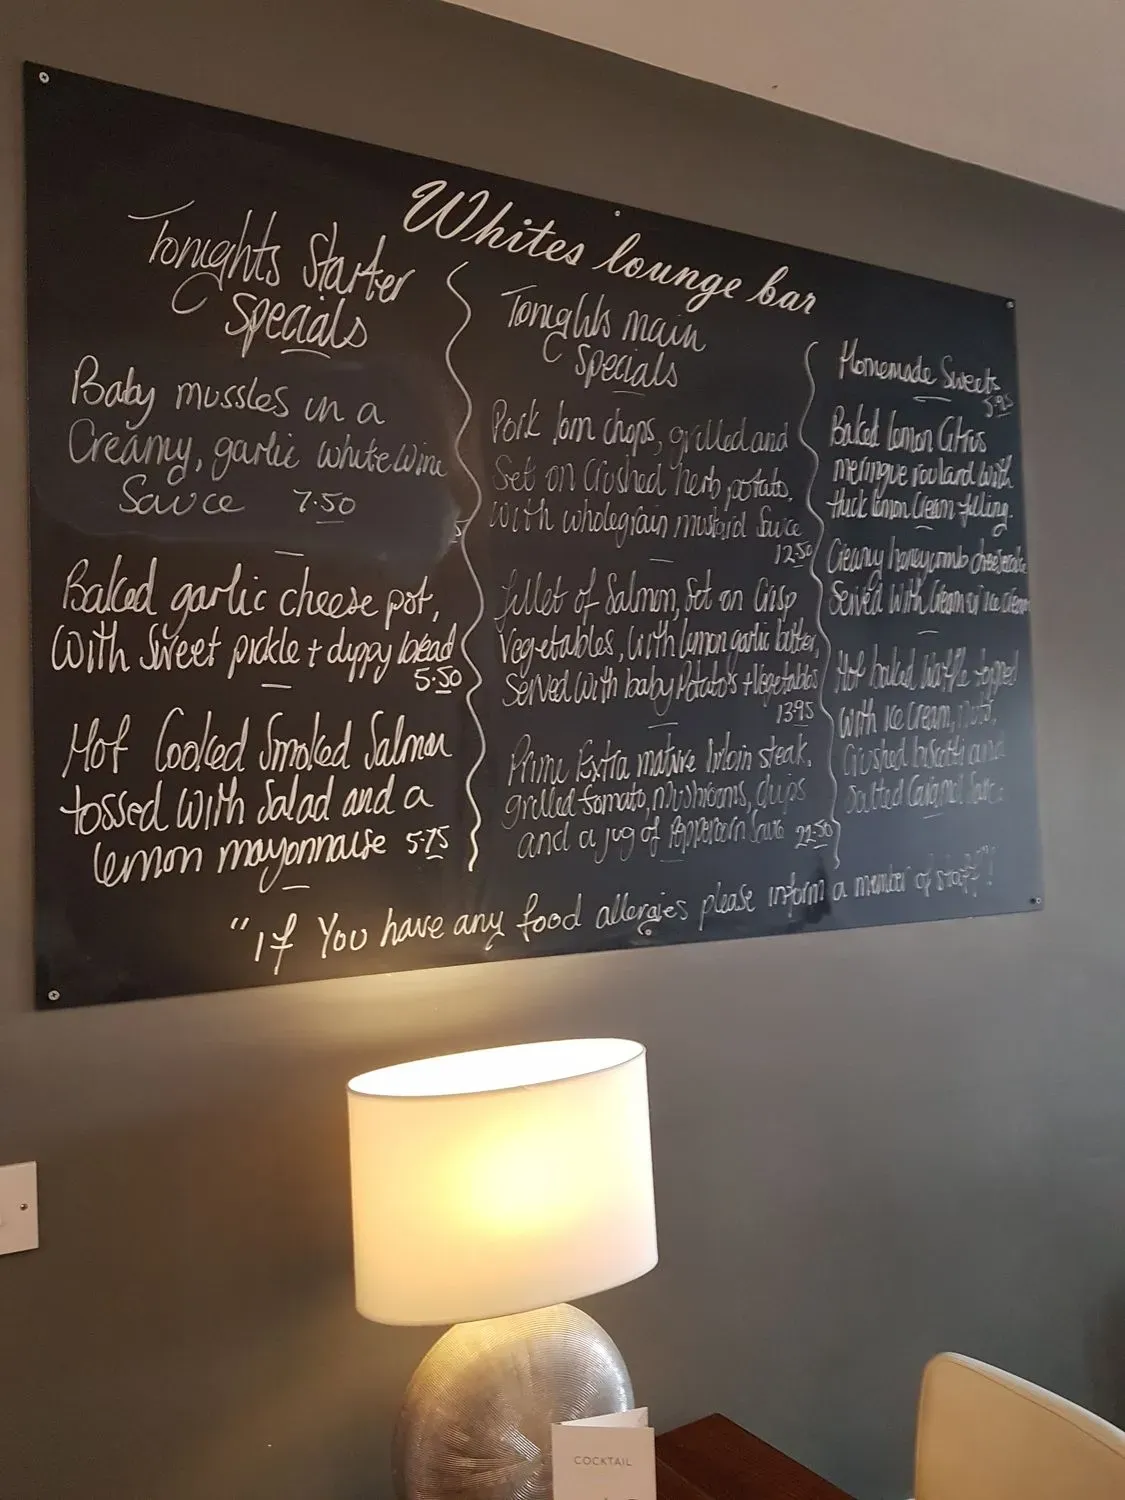 Whites lounge bar
Tonights Starter
Specials
Baby mussles in a
Creamy, garlic white wine
Sauce 7.50
Baked garlic cheese pot,
with Sweet pickle + dippy bread
5.50
Hot Cooked Smoked Salmon
tossed with Salad and a
lemon mayonnaise 5.75
Tonights main
Specials
Pork loin chops, grilled and
Set on Crushed herb potato,
with wholegrain mustard Sauce
12.50
fillet of Salmon, Set on Crisp
Vegetables, with lemon garlic butter,
Served with baby Potato's + Vegetables
13.95
Prime Extra mature Sirloin steak,
grilled tomato, mushrooms, chips
and a jug of Peppercorn Sauce 22.50
Homemade Sweets
5.95
Baked lemon Citrus
meringue roulard with
thick lemon Cream filling.
Creamy honeycomb cheesecake
Served with Cream or ice Cream
Hot baked Waffle topped
with Ice Cream, Nuts,
Crushed biscotti and
Salted Caramel Sauce
"If You have any food allergies please inform a member of staff"!
COCKTAIL